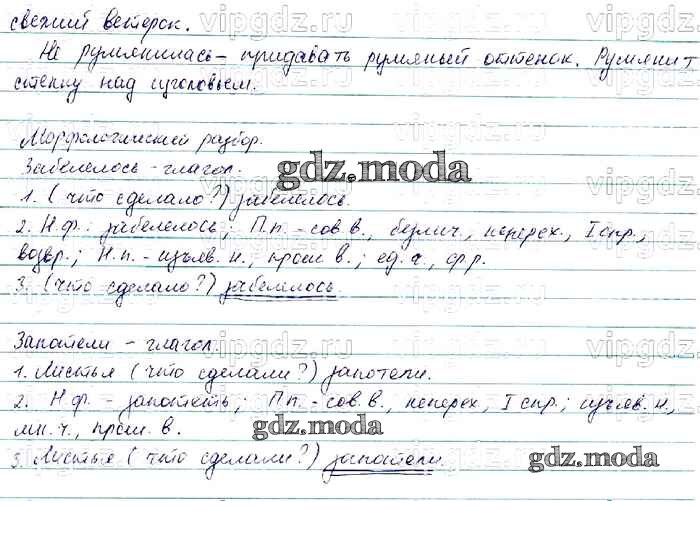 свежий ветерок.
Не румянилась – придавать румяный оттенок. Румянит
стенку над изголовьем.
Морфологический разбор.
Забелелось – глагол.
1. (что сделало?) забелелось.
2. Н.ф.: забелелось; П.п. – сов. в., безлич., неперех., I спр.,
возвр.; Н.п. – изъяв. н., прош. в.; ед. ч., ср. р.
3. (что сделало?) забелелось.
Запотели – глагол.
1. Листья (что сделали?) запотели.
2. Н.ф. – запотеть; П.п. – сов. в., неперех., I спр.; изъяв. н.,
мн. ч., прош. в.
3. Листья (что сделали?) запотели.
gdz.moda
gdz.moda
gdz.moda
vipgdz.ru
vipgdz.ru
vipgdz.ru